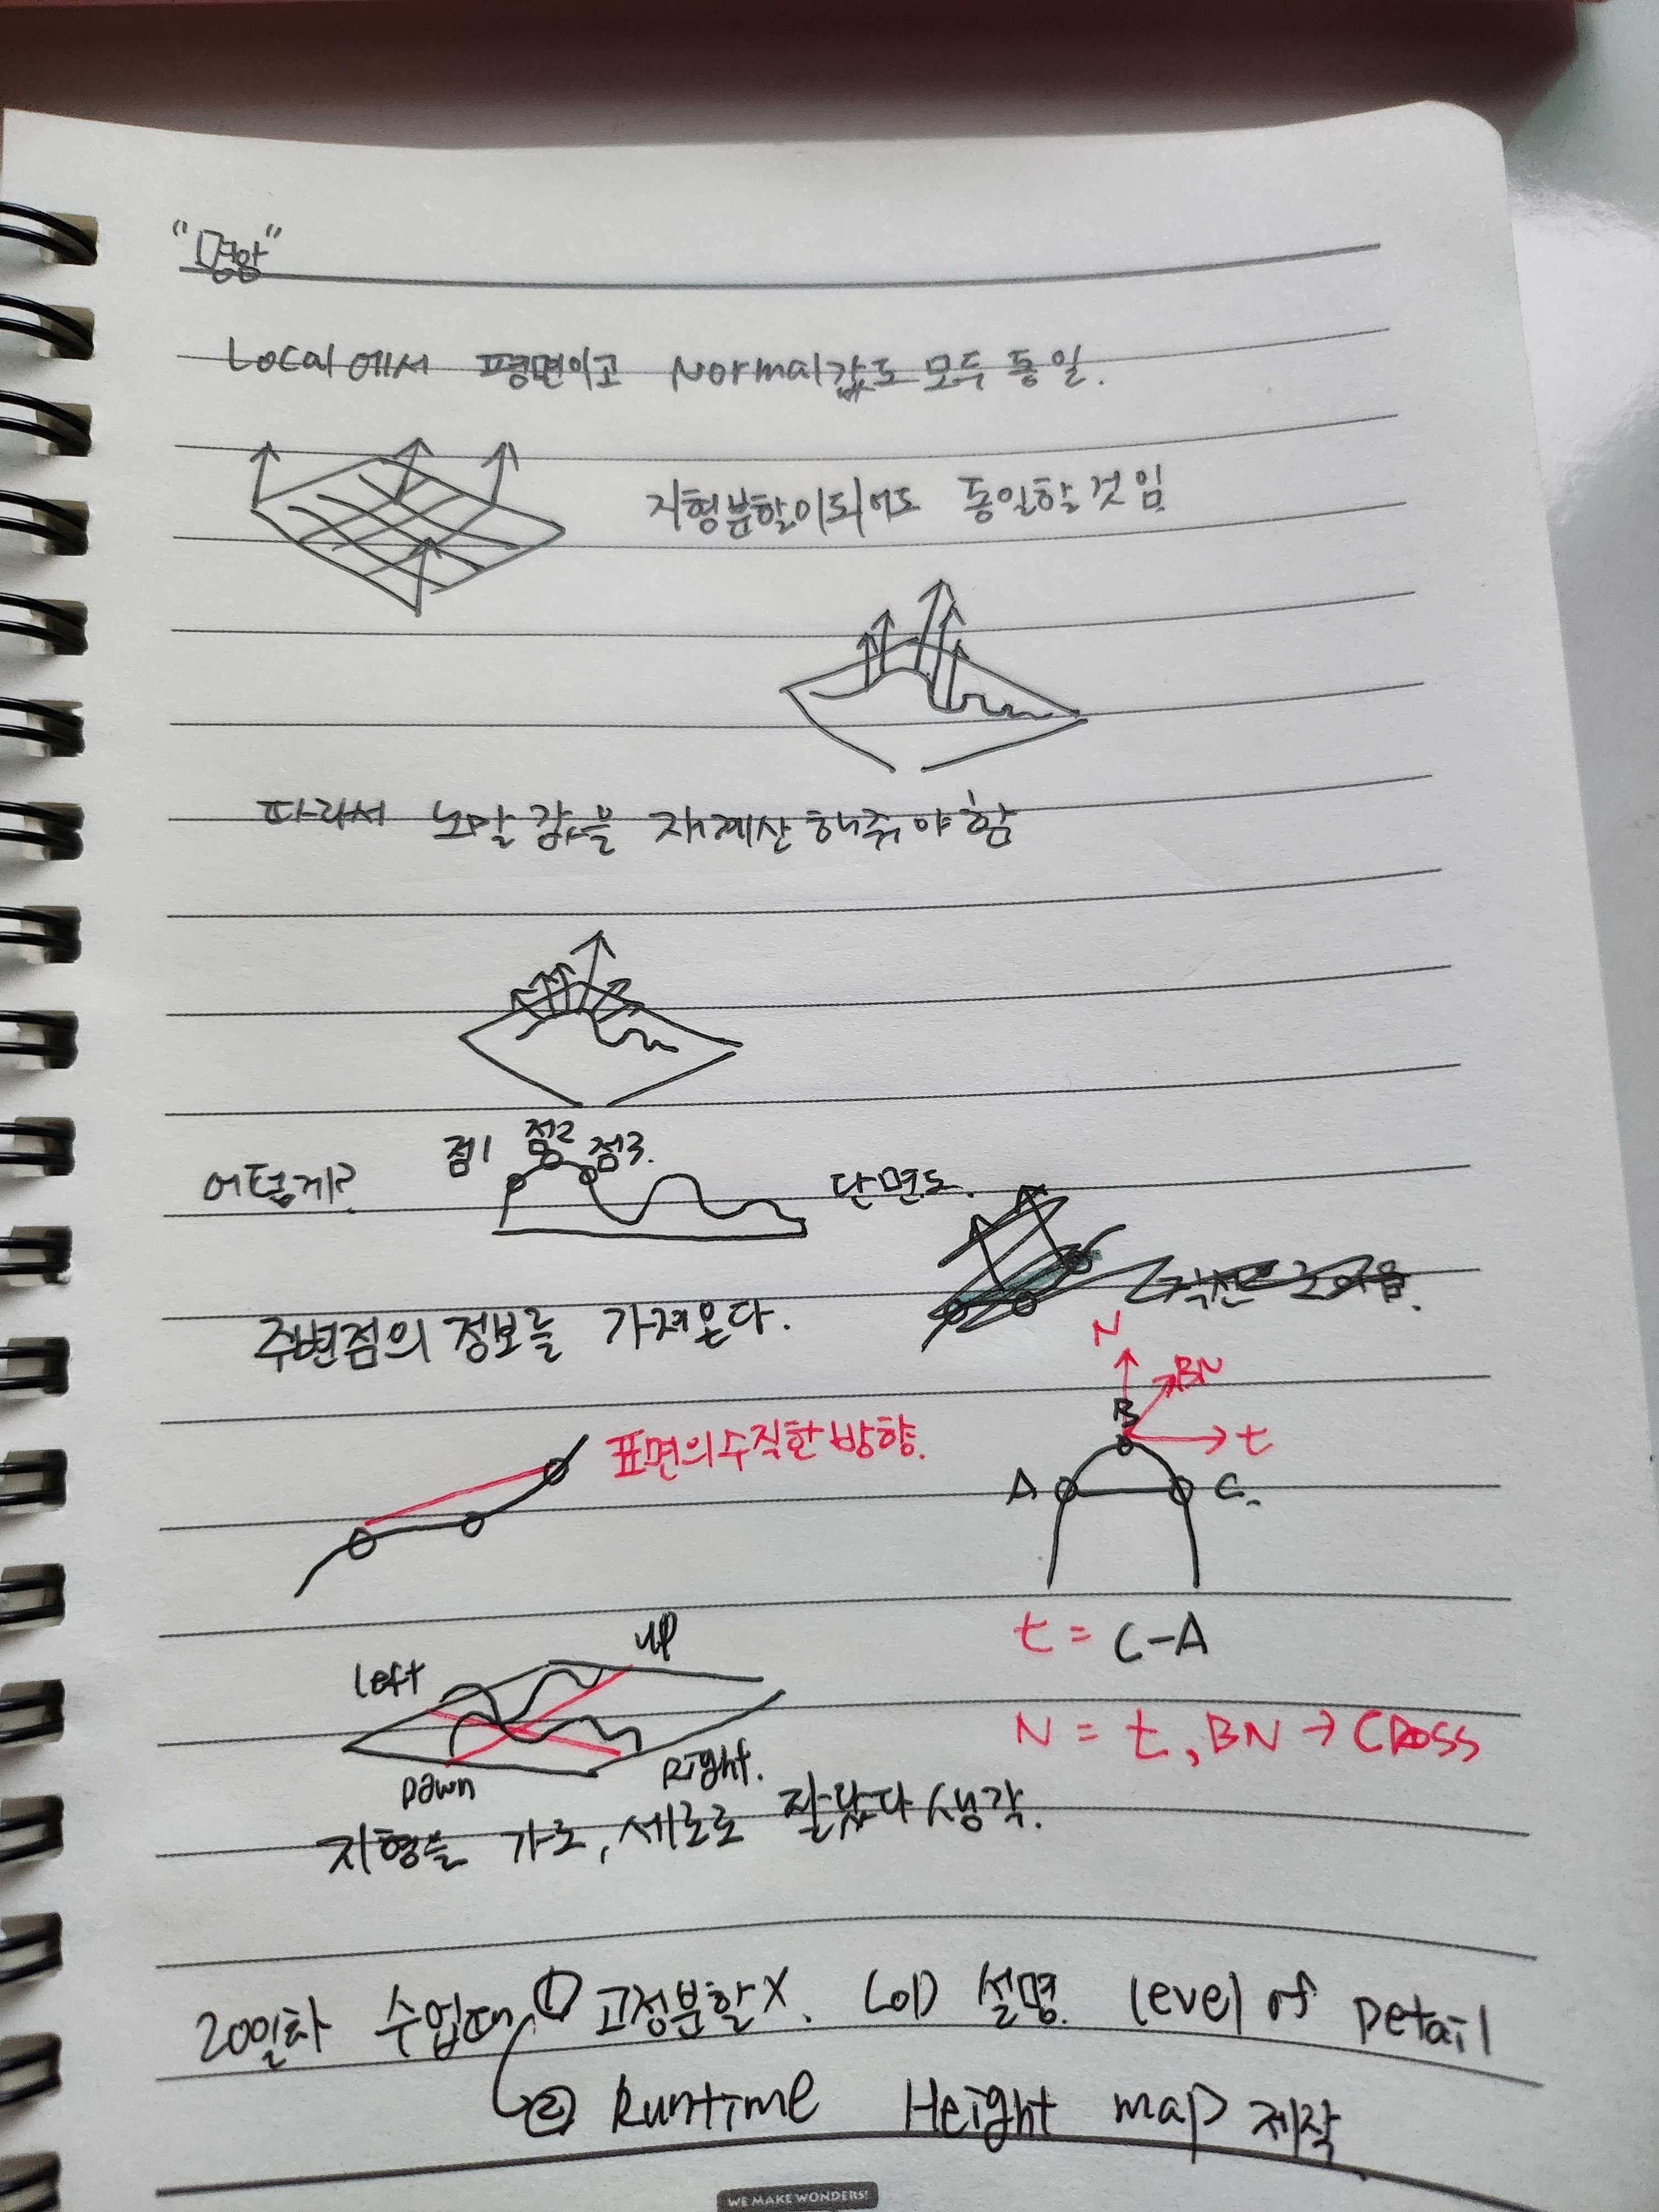 "명암"
Local에서 평면이고 Normal값도 모두 동일.
지형분할이되어도 동일할것임
따라서 노말값을 재계산해줘야함
점1 점2 점3.
어떻게? 단면도.
주변점의 정보를 가져온다.
N
BN
B
t
표면의수직한방향.
A C.
up
left
t = C-A
N = t, BN → CROSS
Right.
Down
지형을 가로, 세로로 잘랐다 생각.
20일차 수업때, ① 고정분할X. LOD 설명. Level of Detail
② Runtime Height map 제작
WE MAKE WONDERS!